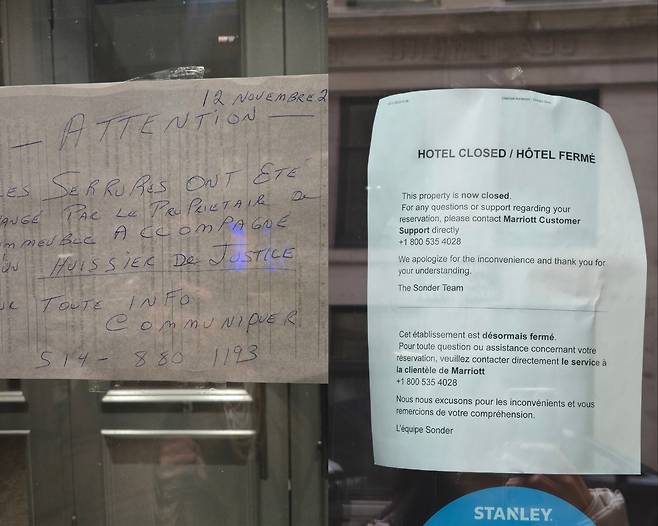 12 NOVEMBRE 2
— ATTENTION —
LES SERRURES ONT ÉTÉ
ANGÉ PAR LE PROPRIETAIR DE
MMEUBLE ACCOMPAGNÉ
UN HUISSIER DE JUSTICE
UR TOUTE INFO
COMMUNIQUER
514 - 880 1193
HOTEL CLOSED / HÔTEL FERMÉ
This property is now closed.
For any questions or support regarding your
reservation, please contact Marriott Customer
Support directly
+1 800 535 4028
We apologize for the inconvenience and thank you for
your understanding.
The Sonder Team
Cet établissement est désormais fermé.
Pour toute question ou assistance concernant votre
réservation, veuillez contacter directement le service à
la clientèle de Marriott
+1 800 535 4028
Nous nous excusons pour les inconvénients et vous
remercions de votre compréhension.
L'équipe Sonder
STANLEY